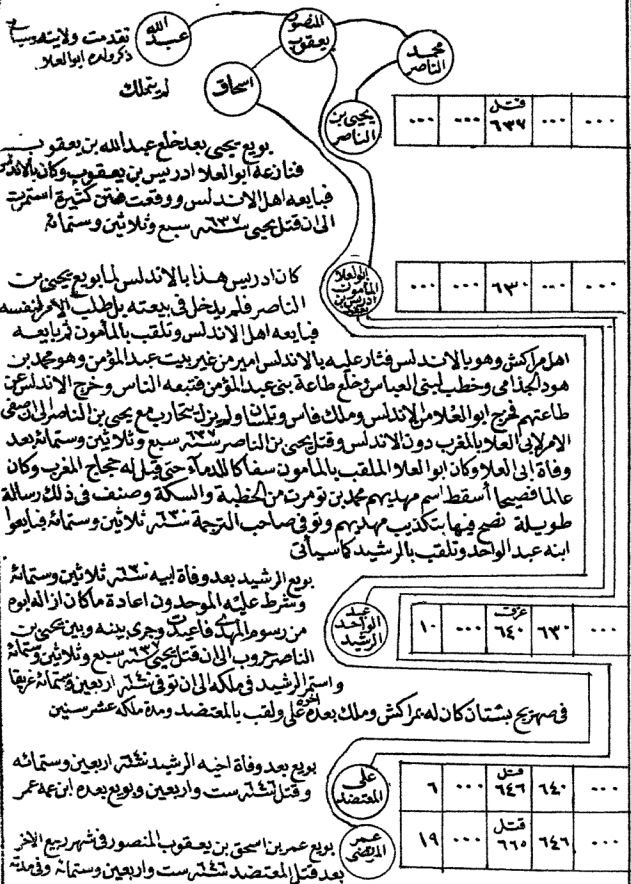 المنصور
يعقوب
عبد
الله
تقدمت ولايته وسيأتي
ذكر ولده ابو العلا
محمد
الناصر
اسحاق
لم يتملك
يحيى بن
الناصر
... ... قتل ٦٣٧ ... ...
بويع يحيى بعد خلع عبد الله بن يعقوب
فنازعه ابو العلا ادريس بن يعقوب وكان بالاندلس
فبايعه اهل الاندلس ووقعت فتن كثيرة استمرت
الى ان قتل يحيى سنة ٦٣٧ سبع وثلاثين وستمائة
ابو العلا
المأمون
ادريس بن
يعقوب
... ... ٦٣٠ ... ...
كان ادريس هذا بالاندلس لما بويع يحيى بن
الناصر فلم يدخل في بيعته بل طلب الامر لنفسه
فبايعه اهل الاندلس وتلقب بالمأمون ثم بايعه
اهل مراكش وهو بالاندلس فثار عليه بالاندلس امير من غير بيت عبد المؤمن وهو محمد بن
هود الجذامى وخطب لبنى العباس وخلع طاعة بنى عبد المؤمن فتبعه الناس وخرج الاندلس عن
طاعتهم فخرج ابو العلا من الاندلس وملك فاس وتلمسان ولم يزل يتحارب مع يحيى بن الناصر الى ان صفى
الامر لابى العلا بالمغرب دون الاندلس وقتل يحيى بن الناصر سنة ٦٣٧ سبع وثلاثين وستمائة بعد
وفاة ابى العلا وكان ابو العلا الملقب بالمأمون سفاكا للدماء حتى قيل له حجاج المغرب وكان
عالما فصيحا أسقط اسم مهديهم محمد بن تومرت من الخطبة والسكة وصنف فى ذلك رسالة
طويلة نصح فيها بتكذيب مهديهم وتوفى صاحب الترجمة سنة ٦٣٠ ثلاثين وستمائة فبايعوا
ابنه عبد الواحد وتلقب بالرشيد كما سيأتى
بويع الرشيد بعد وفاة ابيه سنة ٦٣٠ ثلاثين وستمائة
وشرط عليه الموحدون اعادة ما كان ازاله ابوه
من رسوم المهدى فاعيدت وجرى بينه وبين يحيى بن
الناصر حروب الى ان قتل يحيى سنة ٦٣٧ سبع وثلاثين وستمائة
واستمر الرشيد فى ملكه الى ان توفى سنة ٦٤٠ اربعين وستمائة غريقا
فى صهريج بستان كان له بمراكش وملك بعده اخوه على ولقب بالمعتضد ومدة ملكه عشر سنين
عبد
الواحد
الرشيد
١٠ ... غرق ٦٤٠ ٦٣٠ ...
بويع بعد وفاة اخيه الرشيد سنة ٦٤٠ اربعين وستمائه
وقتل سنة ٦٤٦ ست واربعين وبويع بعده ابن عمه عمر
على
المعتضد
٦ ... قتل ٦٤٦ ٦٤٠ ...
بويع عمر بن اسحق بن يعقوب المنصور فى شهر ربيع الاخر
بعد قتل المعتضد سنة ٦٤٦ ست واربعين وستمائة وفى مدته
عمر
المرتضى
١٩ ... قتل ٦٦٥ ٦٤٦ ...